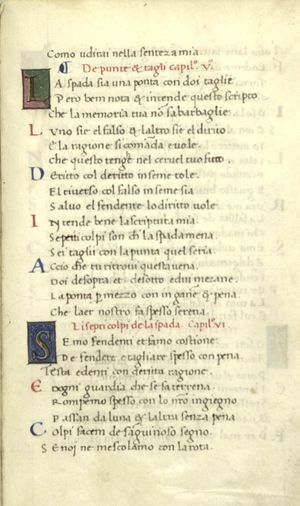 Como udirai nella sentēza mia.
¶ De punte & tagli capil° V°
LA spada sia una ponta con doi taglie
Pero bem nota & intende questo scripto
Che la memoria tua nō sabarbaglie.
Luno sie el falso & laltro sie el dirito
E la ragione si comāda e uole.
Che questo tenge nel ceruel tuo fitto.
Derito col derito inseme tole.
El riuerso col falso inseme sia
Saluo el fendente lo dirito uole.
Intende bene la scriptura mia.
Septi colpi son chi la spada mena.
Sei tagli con la punta quel seria
Accio che tu ritroui questa uena.
Doi desopra et desotto edui mezane.
La ponta p mezzo con ingāne & pena
Che laer nostro fa spesso serena.
Li septi colpi de la spada. Capil° VI
Semo fendenti et famo costione:
De fendere et tagliare spesso con pena.
Testa edenti con derita ragione.
E dogni guardia che se fa terrena
Rompemo spesso con lo nrō ingiegno
Passin da luna & laltra senza pena
Colpi facem de sāguinoso segno.
Se noi ne mescolamo con la rota.